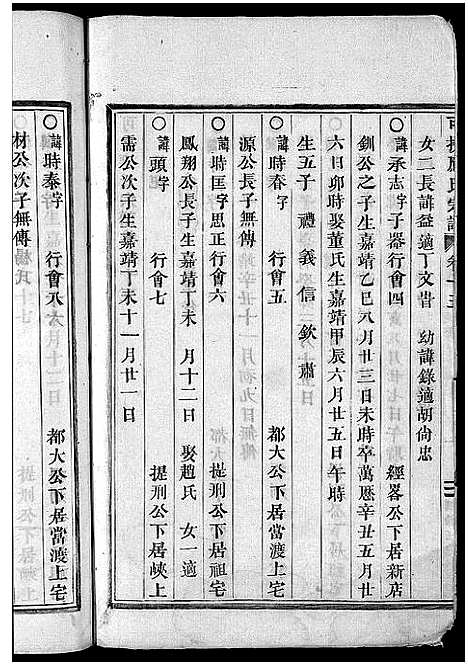 女二長諱益適丁文昔 幼諱錄適胡尙忠
○諱承志字子器行會四 經畧公下居新店
釧公之子生嘉靖乙巳八月廿三日未時卒萬曆辛丑五月廿
六日卯時娶董氏生嘉靖甲辰六月廿五日午時
生五子 禮 義 信 欽 肅
○諱時春字 行會五 都大公下居當渡上宅
源公長子無傳
○諱時匡字思正行會六 提刑公下居祖宅
鳳翔公長子生嘉靖丁未 月十二日 娶趙氏 女一適
○諱頭字 行會七 提刑公下居峽上
需公次子生嘉靖丁未十一月廿一日
○諱時泰字 行會八 都大公下居當渡上宅
材公次子無傳